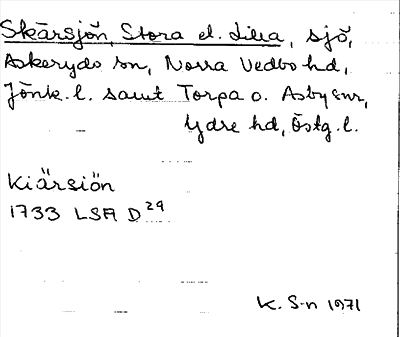 Skärsjön, Stora el. Lilla, sjö,
Askeryds sn, Norra Vedbo hd,
Jönk. l. samt Torpa o. Asby snr,
Ydre hd, Östg. l.
Kiärsiön
1733 LSA D29
K. S-n 1971